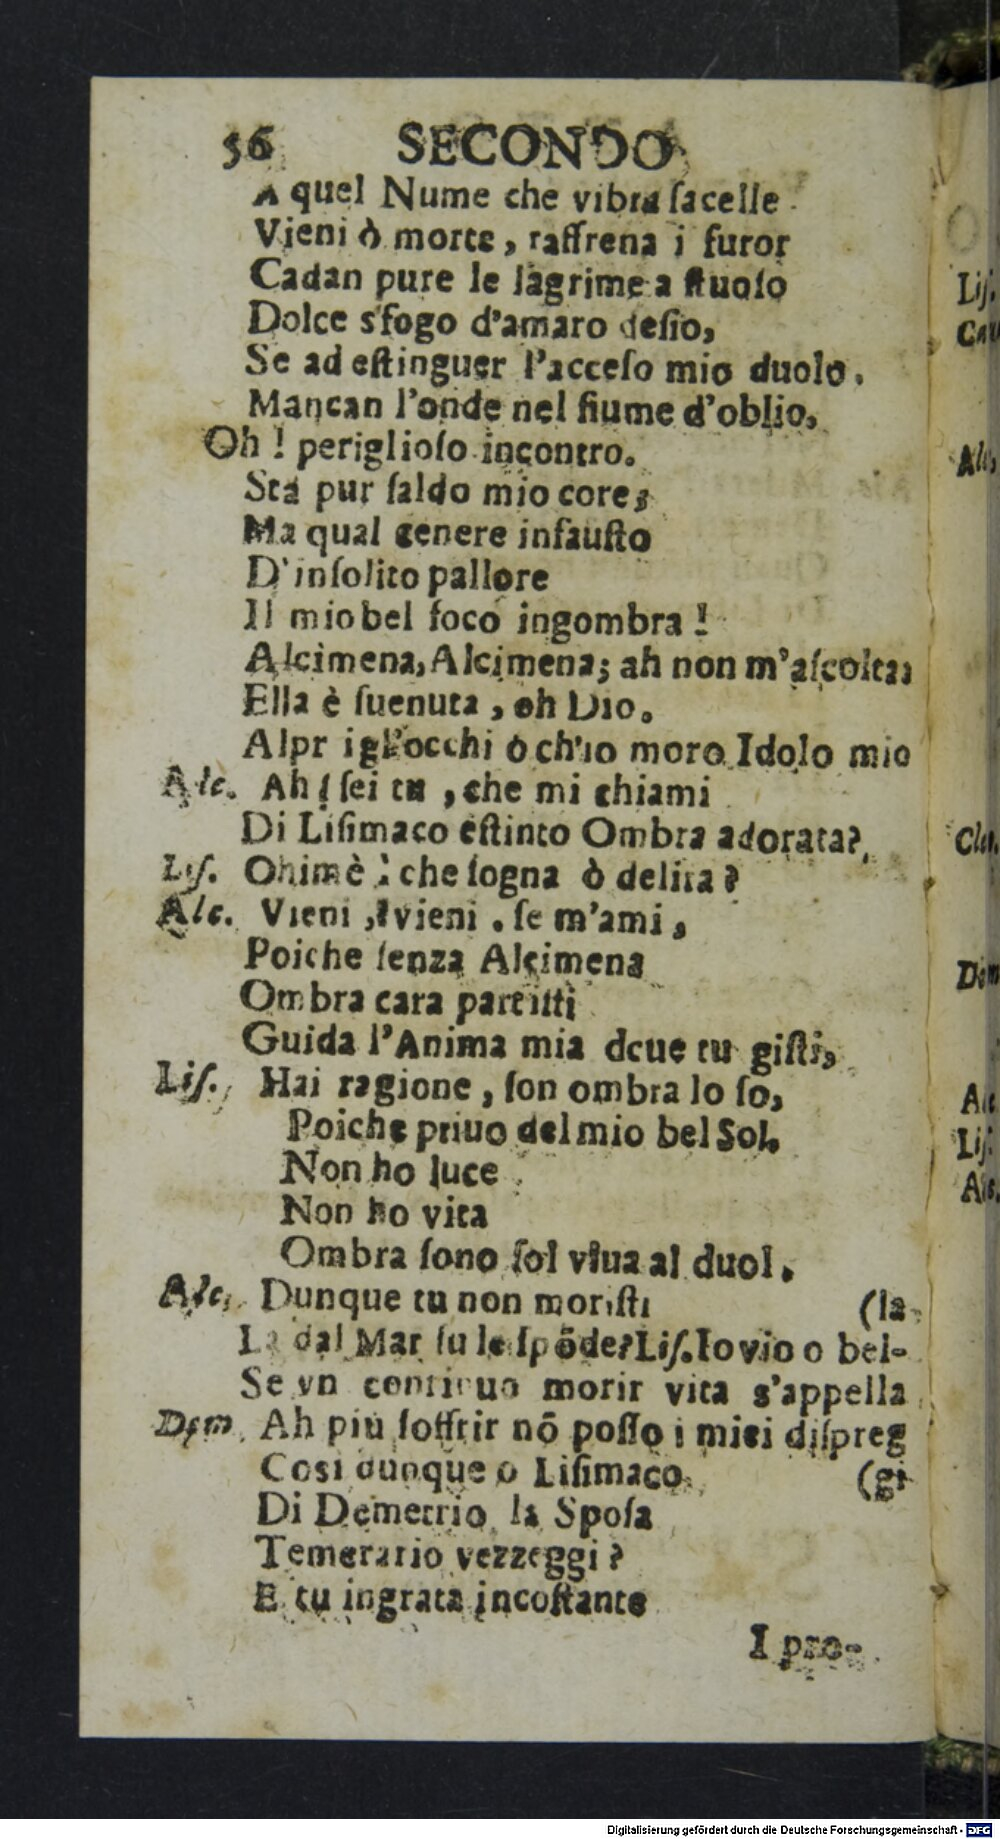 56 SECONDO
A quel Nume che vibra facelle
Vieni ò morte, raffrena i furor
Cadan pure le lagrime a ſtuolo
Dolce sfogo d'amaro deſio,
Se ad eſtinguer l'acceſo mio duolo.
Mancan l'onde nel fiume d'oblio,
Oh ! periglioſo incontro.
Stà pur ſaldo mio core;
Ma qual genere infauſto
D'inſolito pallore
Il mio bel foco ingombra !
Alcimena, Alcimena; ah non m'aſcolta;
Ella è ſuenuta, oh Dio.
Alpr i gl'occhi ò ch'io moro Idolo mio
Alc. Ah ! ſei tu, che mi chiami
Di Liſimaco eſtinto Ombra adorata?
Liſ. Ohimè ! che ſogna ò delira?
Alc. Vieni, vieni. ſe m'ami,
Poiche ſenza Alcimena
Ombra cara partiſti
Guida l'Anima mia doue tu giſti,
Liſ. Hai ragione, ſon ombra lo ſo,
Poiche priuo del mio bel Sol.
Non ho luce
Non ho vita
Ombra ſono ſol viua al duol.
Alc. Dunque tu non moriſti (la
La dal Mar ſu le ſpōde? Liſ. Io vio o bel-
Se vn continuo morir vita s'appella
Dem. Ah più ſoffrir nō poſſo i miei diſpreg
Coſi dunque o Liſimaco (gi
Di Demetrio la Spoſa
Temerario vezzeggi?
E tu ingrata incoſtante
I pro-
Liſ.
Alc.
Cler.
Dem
Liſ.
Digitalisierung gefördert durch die Deutsche Forschungsgemeinschaft - DFG